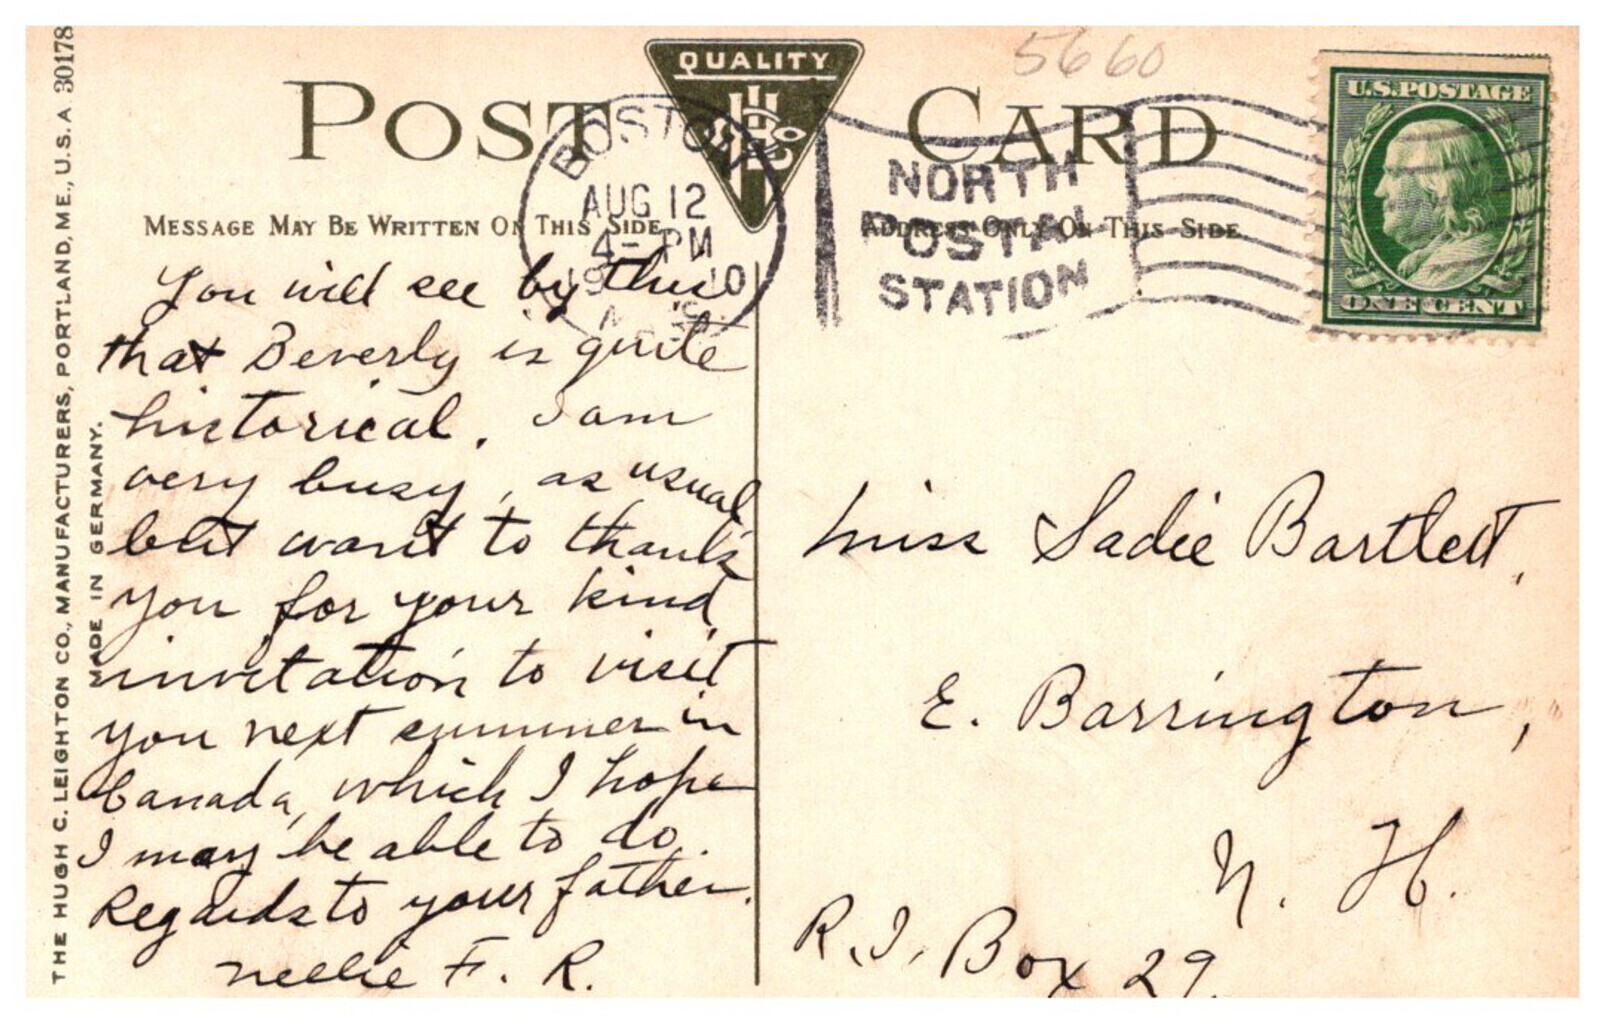 THE HUGH C. LEIGHTON CO., MANUFACTURERS, PORTLAND, ME., U.S.A 30178
MADE IN GERMANY.
POST CARD
QUALITY
5660
U.S. POSTAGE
ONE CENT
BOSTON
AUG 12
4 - PM
NORTH
POSTAL
STATION
MESSAGE MAY BE WRITTEN ON THIS SIDE
ADDRESS ONLY ON THIS SIDE
You will see by this
that Beverly is quite
historical. I am
very busy, as usual
but want to thank
you for your kind
invitation to visit
you next summer in
Canada, which I hope
I may be able to do.
Regards to your father.
Nellie F. R.
Miss Sadie Bartlett,
E. Barrington,
N. H.
Box 29.